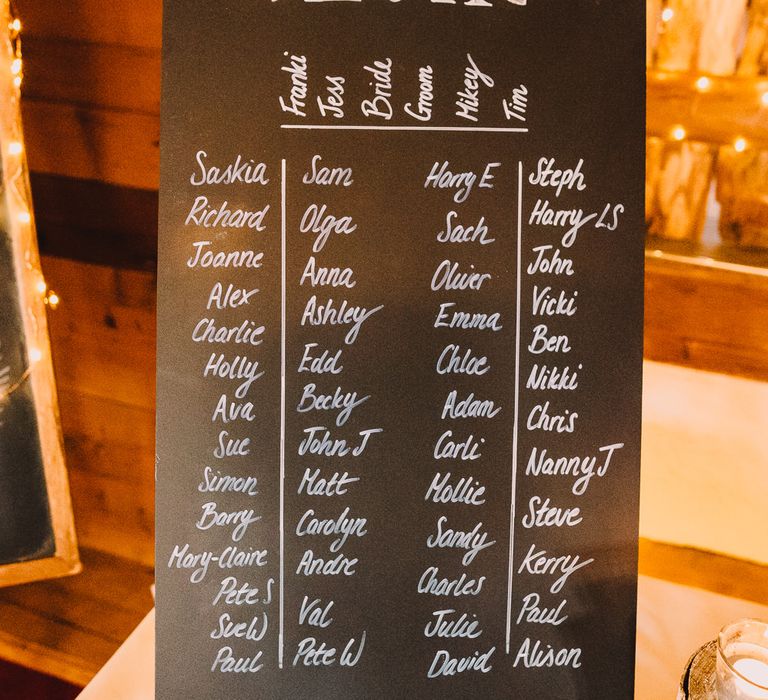 Franki
Jess
Bride
Groom
Mikey
Tim
Saskia
Richard
Joanne
Alex
Charlie
Holly
Ava
Sue
Simon
Barry
Mary-Claire
Pete S
Sue W
Paul
Sam
Olga
Anna
Ashley
Edd
Becky
John J
Matt
Carolyn
Andre
Val
Pete W
Harry E
Sach
Oliver
Emma
Chloe
Adam
Carli
Mollie
Sandy
Charles
Julie
David
Steph
Harry LS
John
Vicki
Ben
Nikki
Chris
Nanny J
Steve
Kerry
Paul
Alison